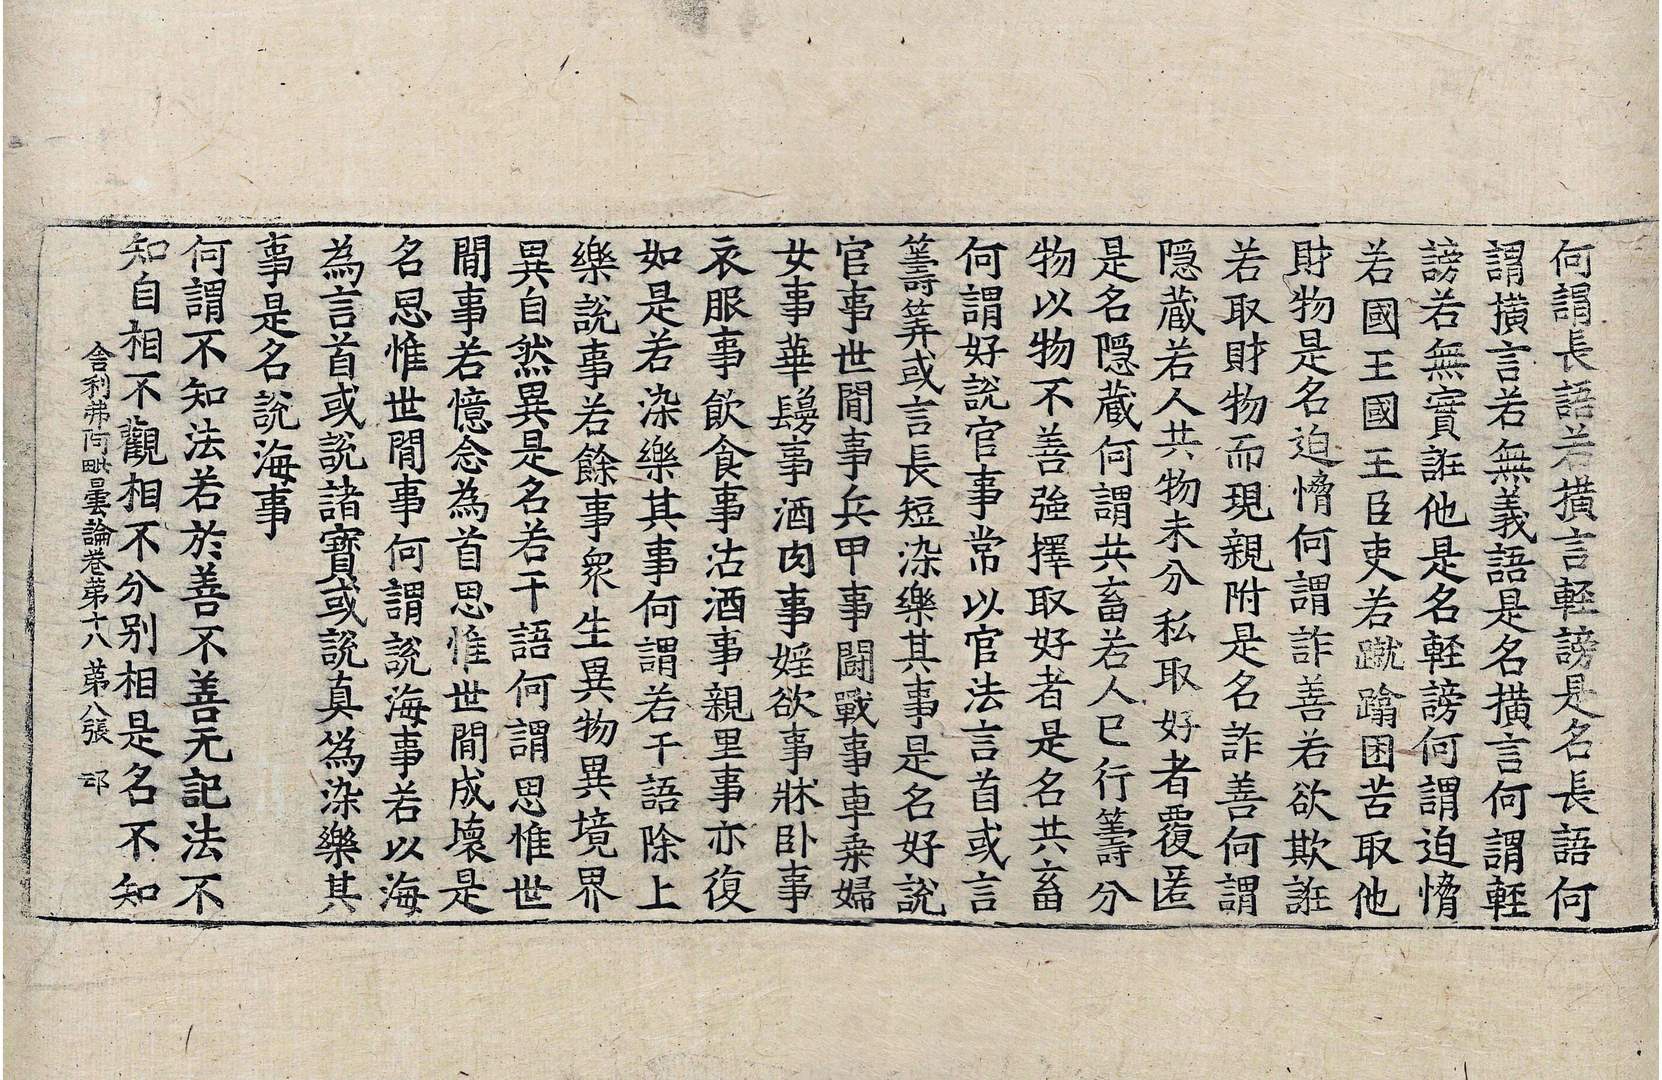 何謂長語若撗言輕謗是名長語何
謂撗言若無義語是名撗言何謂輕
謗若無實誑他是名輕謗何謂迫憎
若國王國王臣吏若蹴蹹困苦取他
財物是名迫憎何謂詐善若欲欺誑
若取財物而現親附是名詐善何謂
隱蔵若人共物未分私取好者覆匿
是名隱蔵何謂共畜若人已行籌分
物以物不善強擇取好者是名共畜
何謂好說官事常以官法言首或言
籌筭或言長短染樂其事是名好說
官事世閒事兵甲事鬪戰事車乗婦
女事華鬘事酒肉事婬欲事牀卧事
衣服事飲食事沽酒事親里事亦復
如是若染樂其事何謂若干語除上
樂說事若餘事衆生異物異境界
異自然異是名若干語何謂思惟世
閒事若憶念為首思惟世閒成壞是
名思惟世閒事何謂說海事若以海
為言首或說諸寳或說真偽染樂其
事是名說海事
何謂不知法若於善不善无記法不
知自相不觀相不分別相是名不知
舍利弗阿毗曇論卷苐十八 苐八張